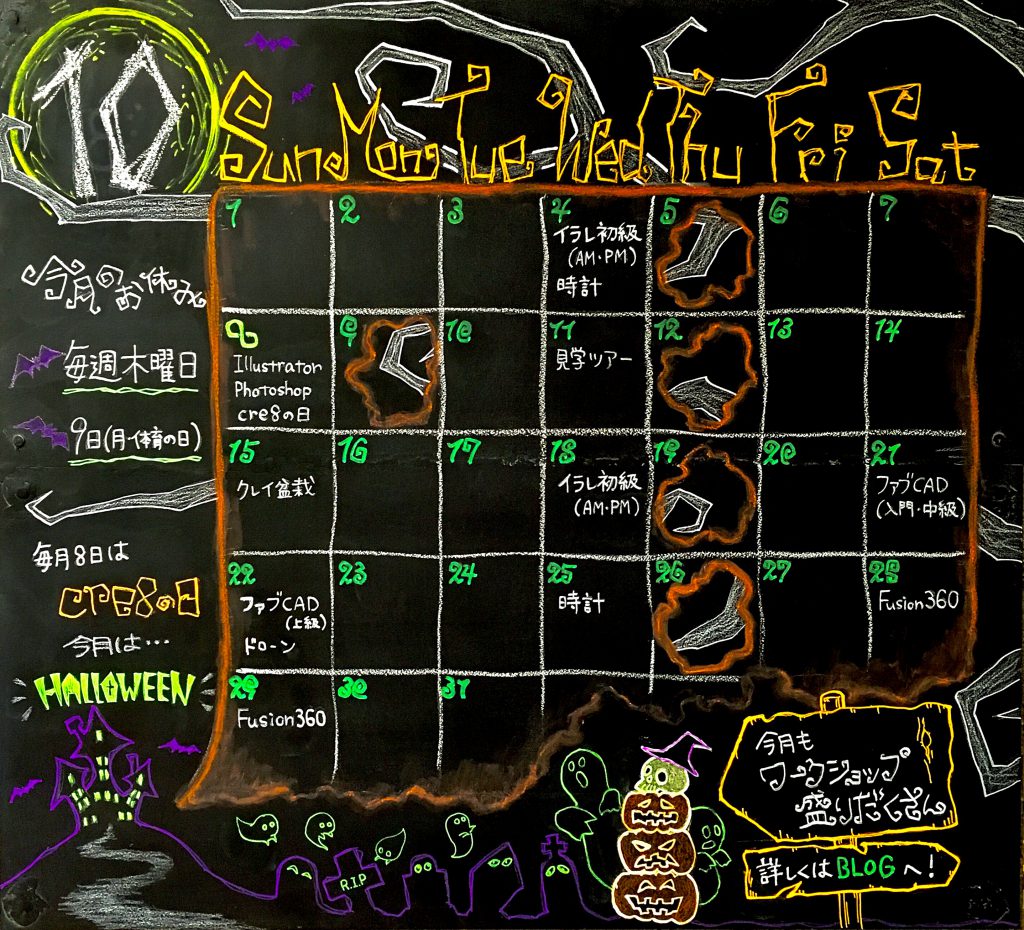 10
Sun Mon Tue Wed Thu Fri Sat
1 2 3 4 5 6 7
イラレ初級
(AM・PM)
時計
今月のお休み
毎週木曜日
9日(月・体育の日)
8 9 10 11 12 13 14
Illustrator
Photoshop
cre8の日
見学ツアー
15 16 17 18 19 20 21
クレイ盆栽
イラレ初級
(AM・PM)
ファブCAD
(入門・中級)
毎月8日は
cre8の日
今月は…
HALLOWEEN
22 23 24 25 26 27 28
ファブCAD
(上級)
ドローン
時計
Fusion360
29 30 31
Fusion360
今月も
ワークショップ
盛りだくさん
詳しくはBLOGへ!
R.I.P